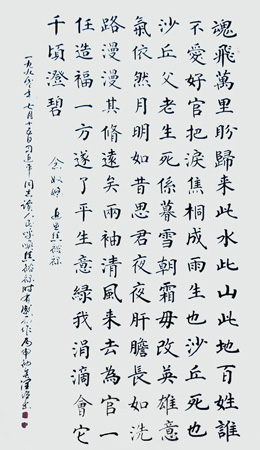 魂飛萬里盼歸來此水此山此地百姓誰
不愛好官把淚焦桐成雨生也沙丘死也
沙丘父老生死係暮雪朝霜毋改英雄意
氣依然月明如昔思君夜夜肝膽長如洗
路漫漫其脩遠矣兩袖清風來去為官一
任造福一方遂了平生意綠我涓滴會它
千頃澄碧 念奴嬌 追思焦裕禄
一九九〇年七月十五日习近平同志读人民呼喚焦裕禄时有感而作